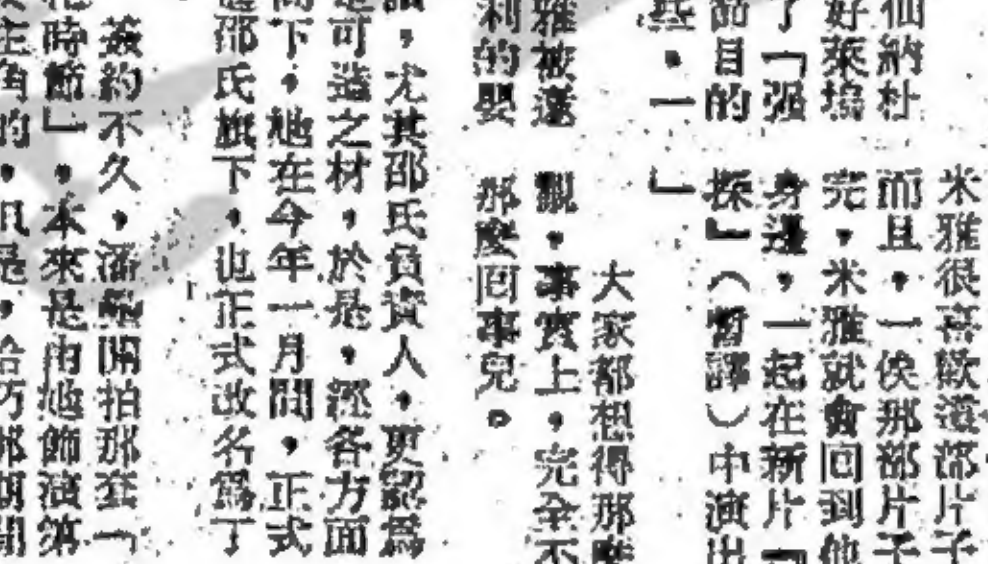 仙納杜
好萊塢
了「强
節目的
些,一
雅被邀
利的嬰
米雅很喜歡這部片子
而且,一俟那部片子
完,米雅就會回到他
身邊,一起在新片「
探」(暫譯)中演出
」
大家都想得那麼
觀,事實上,完全不
那麼囘事兒。
,尤其邵氏負責人,更認爲
是可造之材,於是,經各方面
下,她在今年一月間,正式
邵氏旗下,也正式改名爲丁
簽約不久,潘壘開拍那套「
時節」,本來是由她飾演第
主角的,但是,恰巧那期間